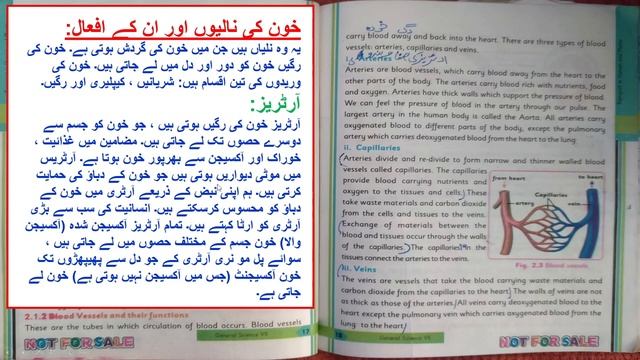 خون کی نالیوں اور ان کے افعال:
یہ وہ نلیاں ہیں جن میں خون کی گردش ہوتی ہے۔ خون کی
رگیں خون کو دور اور دل میں لے جاتی ہیں۔ خون کی
وریدوں کی تین اقسام ہیں: شریانیں ، کیپلیری اور رگیں۔
آرٹریز:
آرٹریز خون کی رگیں ہوتی ہیں ، جو خون کو جسم سے
دوسرے حصوں تک لے جاتی ہیں۔ مضامین میں غذائیت ،
خوراک اور آکسیجن سے بھرپور خون ہوتا ہے۔ آرٹریس
میں موٹی دیواریں ہوتی ہیں جو خون کے دباؤ کی حمایت
کرتی ہیں۔ ہم اپنی نبض کے ذریعے آرٹری میں خون کے
دباؤ کو محسوس کرسکتے ہیں۔ انسانیت کی سب سے بڑی
آرٹری کو ارٹا کہتے ہیں۔ تمام آرٹریز آکسیجن شدہ (آکسیجن
والا) خون جسم کے مختلف حصوں میں لے جاتی ہیں ،
سوائے پل مو نری آرٹری کے جو دل سے پھیپھڑوں تک
خون آکسیجنٹ (جس میں آکسیجن نہیں ہوتی ہے) خون لے
جاتی ہے۔
2.1.2 Blood Vessels and their functions
These are the tubes in which circulation of blood occurs. Blood vessels
General Science VII
17
NOT FOR SALE
carry blood away and back into the heart. There are three types of blood
vessels: arteries, capillaries and veins.
i. Arteries
Arteries are blood vessels, which carry blood away from the heart to the
other parts of the body. The arteries carry blood rich with nutrients, food
and oxygen. Arteries have thick walls which support the pressure of blood.
We can feel the pressure of blood in the artery through our pulse. The
largest artery in the human body is called the Aorta. All arteries carry
oxygenated blood to different parts of the body, except the pulmonary
artery which carries deoxygenated blood from the heart to the lung.
ii. Capillaries
Arteries divide and re-divide to form narrow and thinner walled blood
vessels called capillaries. The capillaries
provide blood carrying nutrients and
oxygen to the tissues and cells. These
take waste materials and carbon dioxide
from the cells and tissues to the veins.
Exchange of materials between the
blood and tissues occur through the walls
of the capillaries. The capillaries in the
tissues connect the arteries to the veins.
from heart
to heart
Capillaries
artery
vein
Fig. 2.3 Blood vessels
iii. Veins
The veins are vessels that take the blood carrying waste materials and
carbon dioxide from the capillaries to the heart. The walls of the veins are not
as thick as those of the arteries. All veins carry deoxygenated blood to the
heart except the pulmonary vein which carries oxygenated blood from the
lung to the heart
18
General Science VII
NOT FOR SALE